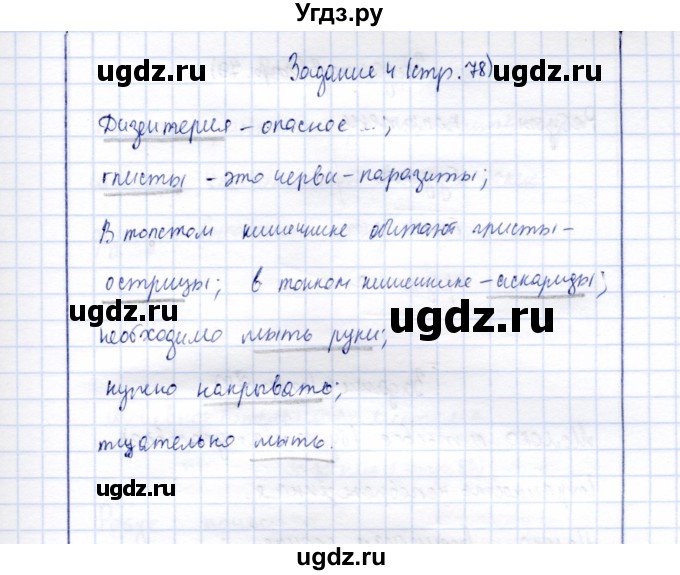 Угдз.ру
ugdz.ru Задание 4 (стр. 78) ugdz.ru
Дизентерия – опасное...;
глисты – это черви-паразиты;
В толстом кишечнике обитают глисты –
острицы; в тонком кишечнике – аскариды;
ugdz.ru
ugdz.ru
необходимо мыть руки;
нужно накрывать;
тщательно мыть.
ugdz.ru
ugdz.ru
ugdz.ru